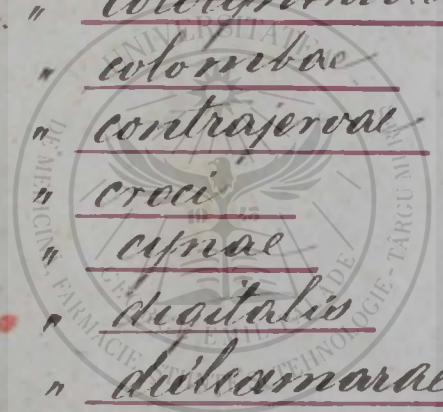 "
" colombae
" contrajervae
" croci
" cynae
" digitalis
" dulcamarae
UNIVERSITATEA DE MEDICINĂ, FARMACIE, ȘTIINȚE ȘI TEHNOLOGIE - TÂRGU MUREȘ
19 45